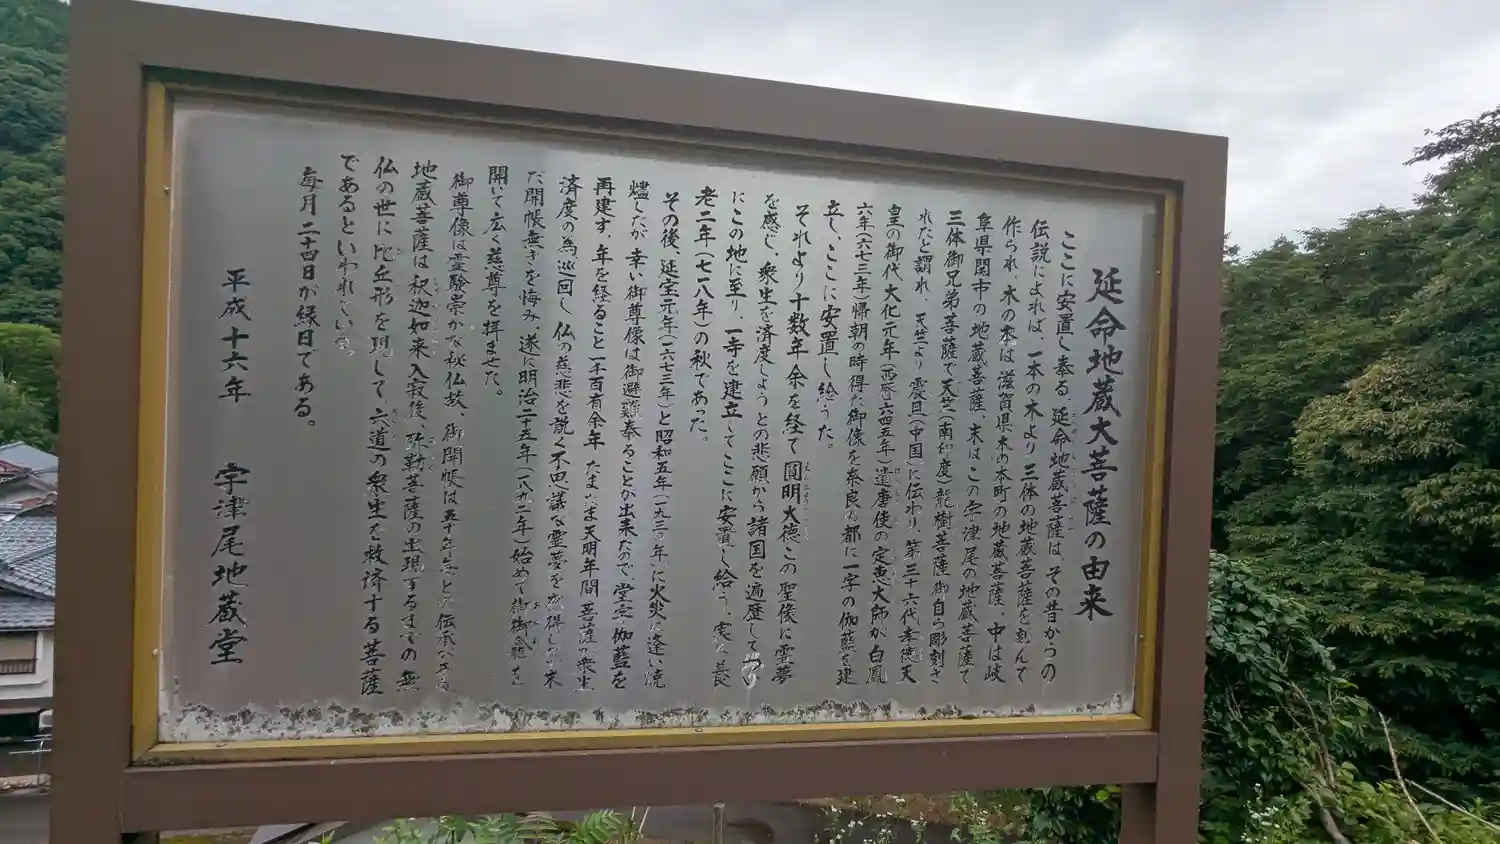 延命地蔵大菩薩の由来
ここに安置し奉る、延命地蔵菩薩は、その昔からの
伝説によれば、一本の木より三体の地蔵菩薩を刻んで
作られ、木の本は滋賀県木の本町の地蔵菩薩、中は岐
阜県関市の地蔵菩薩、末はこの宇津尾の地蔵菩薩で
三体御兄弟菩薩で天竺(南印度)龍樹菩薩御自ら彫刻さ
れたと謂れ、天竺より震旦(中国)に伝わり、第三十六代孝徳天
皇の御代大化元年(西暦六四五年)遣唐使の定恵大師が白鳳
六年(六七三年)帰朝の時得た御像を奈良の都に一宇の伽藍を建
立し、ここに安置し給うた。
それより十数年余を経て圓明大徳この聖像に霊夢
を感じ、衆生を済度しようとの悲願から諸国を遍歴してつい
にこの地に至り、一寺を建立してここに安置し給う、実に養
老二年(七一八年)の秋であった。
その後、延宝元年(一六七三年)と昭和五年(一九三〇年)に火災に逢い焼
燼したが幸い御尊像は御避難奉ることが出来たので、堂宇伽藍を
再建す。年を経ること一千百有余年たまたま天明年間菩薩の衆生
済度の為、巡回し仏の慈悲を説く不思議な霊夢を感得し未
だ開帳無きを悔み、遂に明治二十五年(一八九二年)始めて御を
開いて広く慈尊を拝ませた。
御尊像は霊験崇かな秘仏故、御開帳は五十年毎との伝承がある
地蔵菩薩は釈迦如来入寂後、弥勒菩薩の出現するまでの無
仏の世に比丘形を現して、六道の衆生を救済する菩薩
であるといわれている。
毎月二十四日が縁日である。
平成十六年 宇津尾地蔵堂